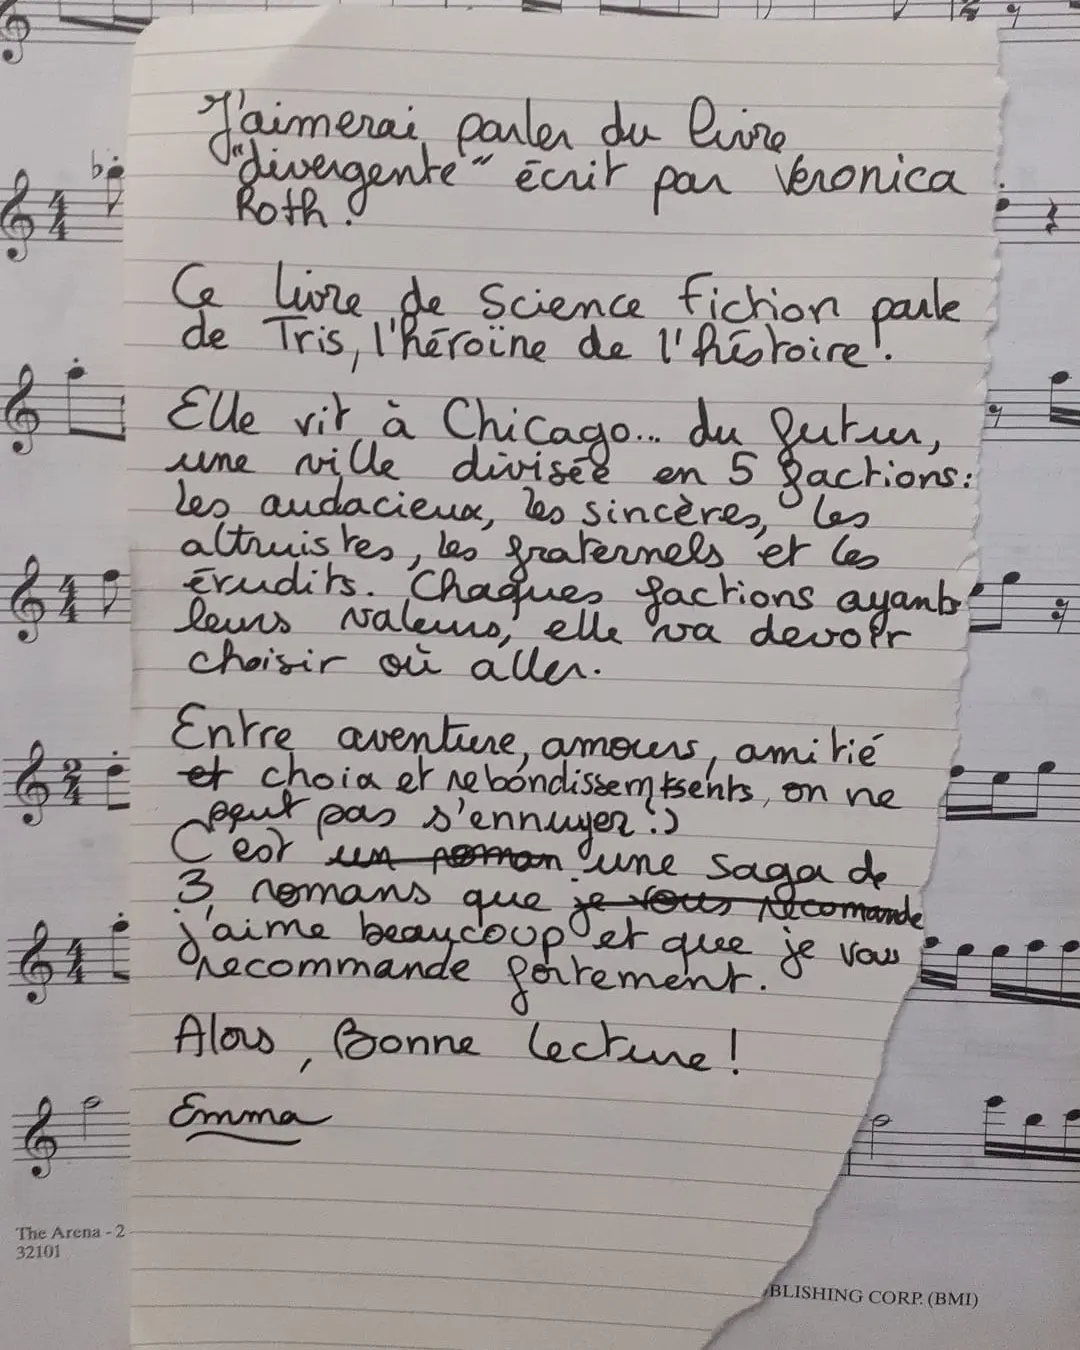 J'aimerai parler du livre
"divergente" écrit par Veronica
Roth.
Ce livre de Science fiction parle
de Tris, l'héroïne de l'histoire!.
Elle vit à Chicago... du futur,
une ville divisée en 5 factions:
les audacieux, les sincères, les
altruistes, les fraternels et les
érudits. Chaques factions ayant
leurs valeurs, elle va devoir
choisir où aller.
Entre aventure, amours, amitié
et choix et rebondissements, on ne
peut pas s'ennuyer :)
C'est un roman une saga de
3 romans que je vous recomande
j'aime beaucoup et que je vous
recommande fortement.
Alors, Bonne lecture!
Emma
The Arena - 2
32101
BLISHING CORP. (BMI)